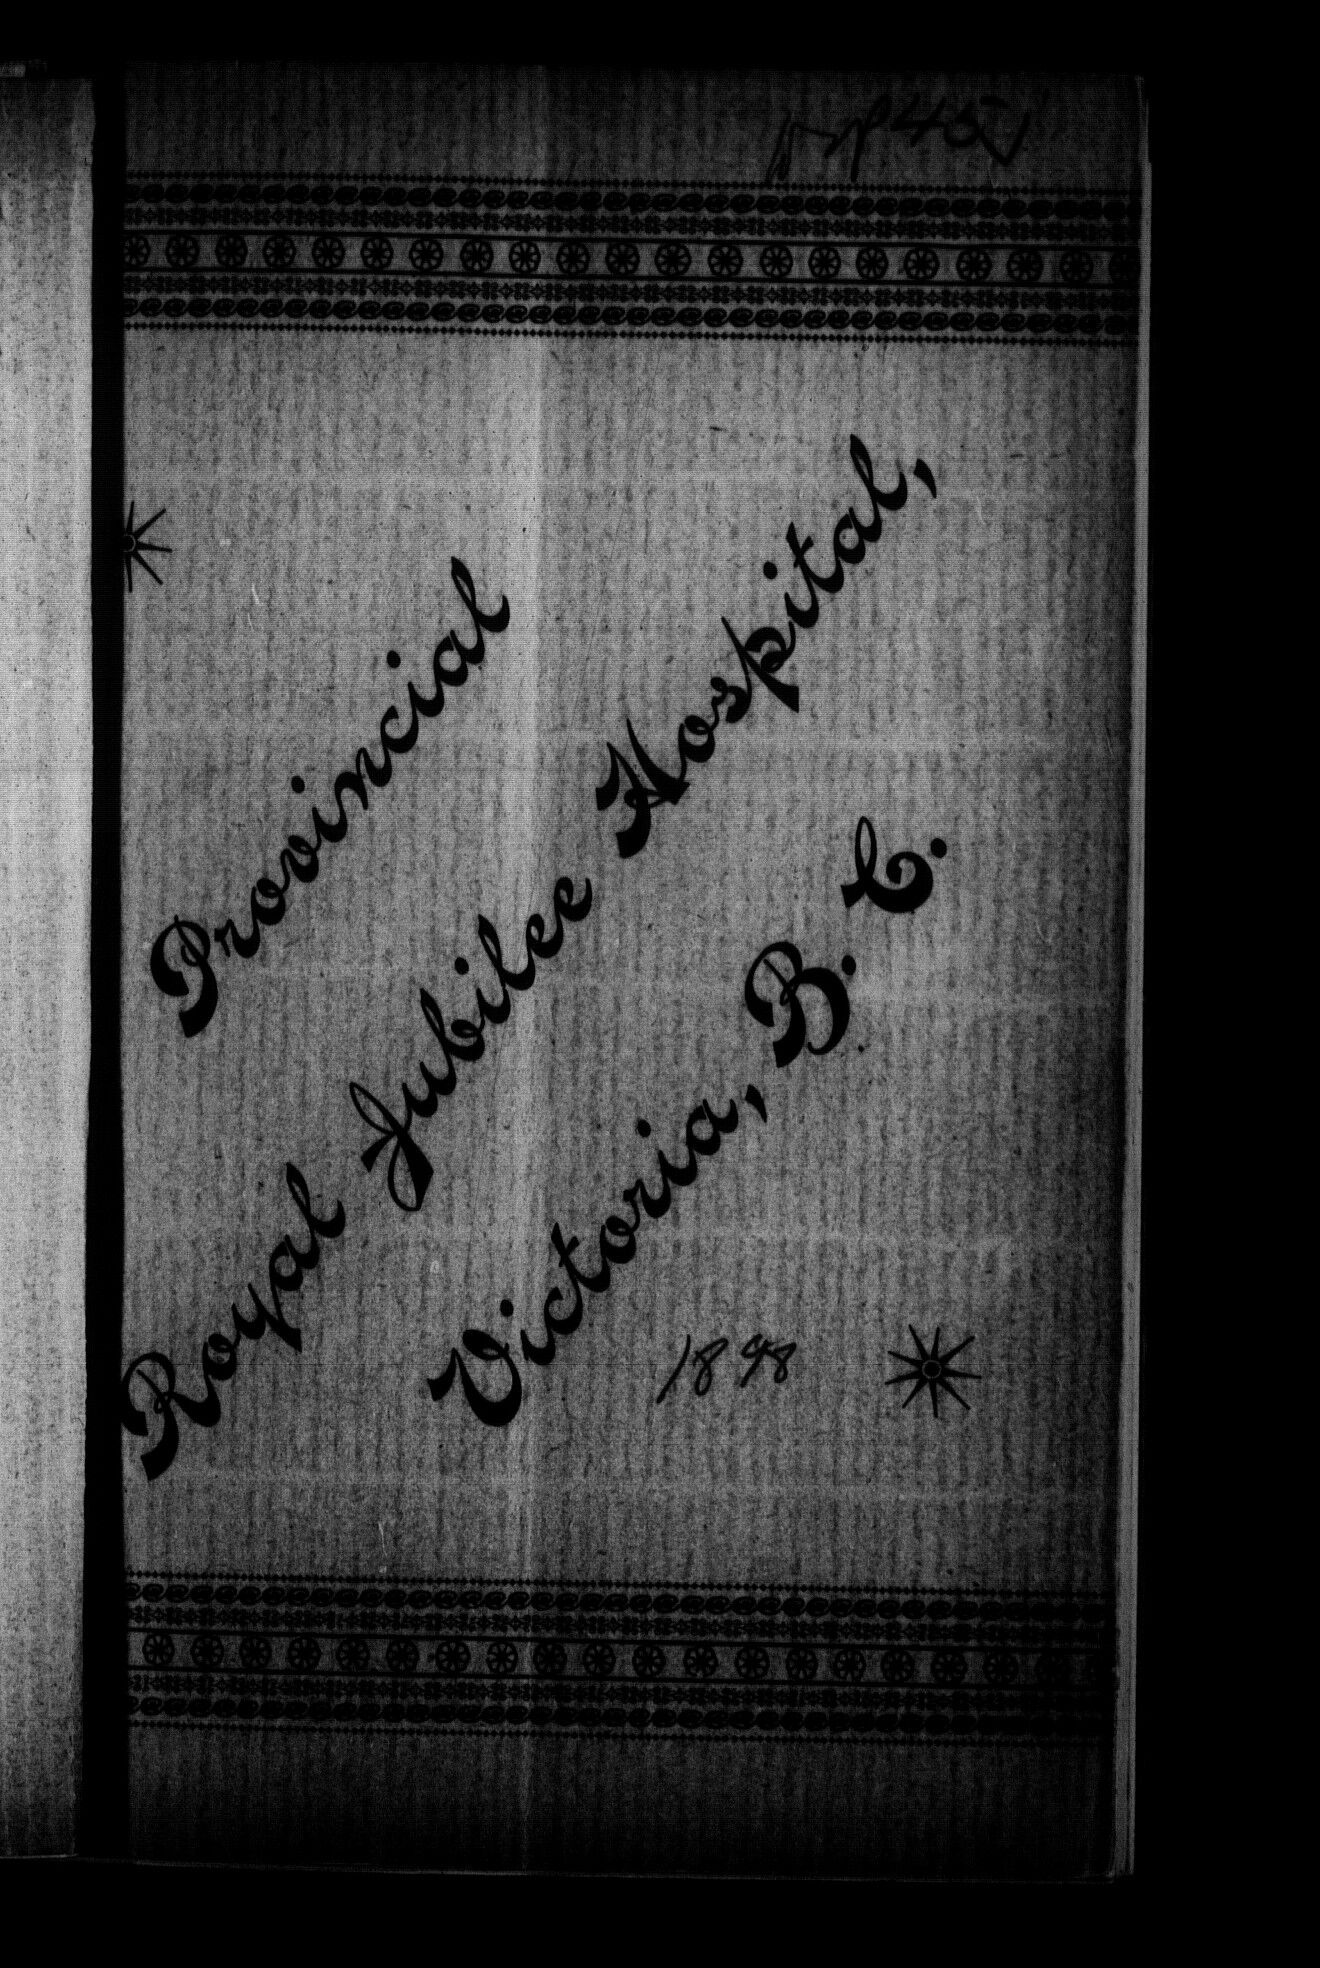 Provincial
Royal Jubilee Hospital,
Victoria, B. C.
1898